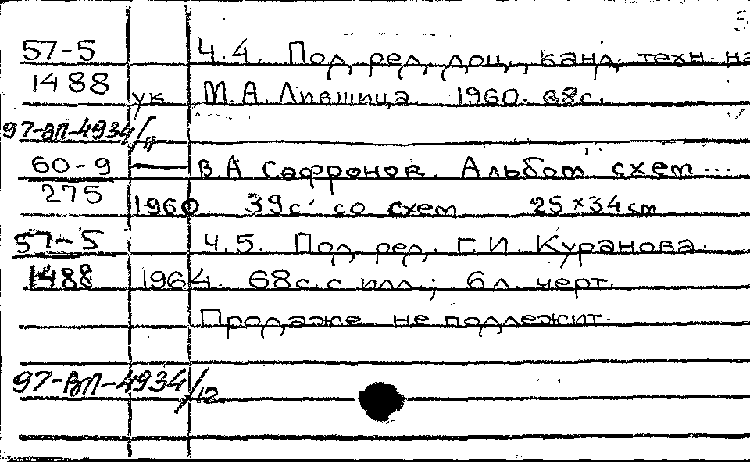 57-5 Ч.4. Под ред. доц., канд. техн. на
1488 ук М.А. Лившица 1960. 88с.
97-ВП-4934/
60-9 — В.А Сафронов. Альбом схем...
275 1960 39с. со схем 25×34 cm
57-5 Ч.5. Под ред. Г.И. Куранова.
1488 1964. 68с. с илл.; 6л. черт.
Продаже не подлежит.
97-ВП-4934/12